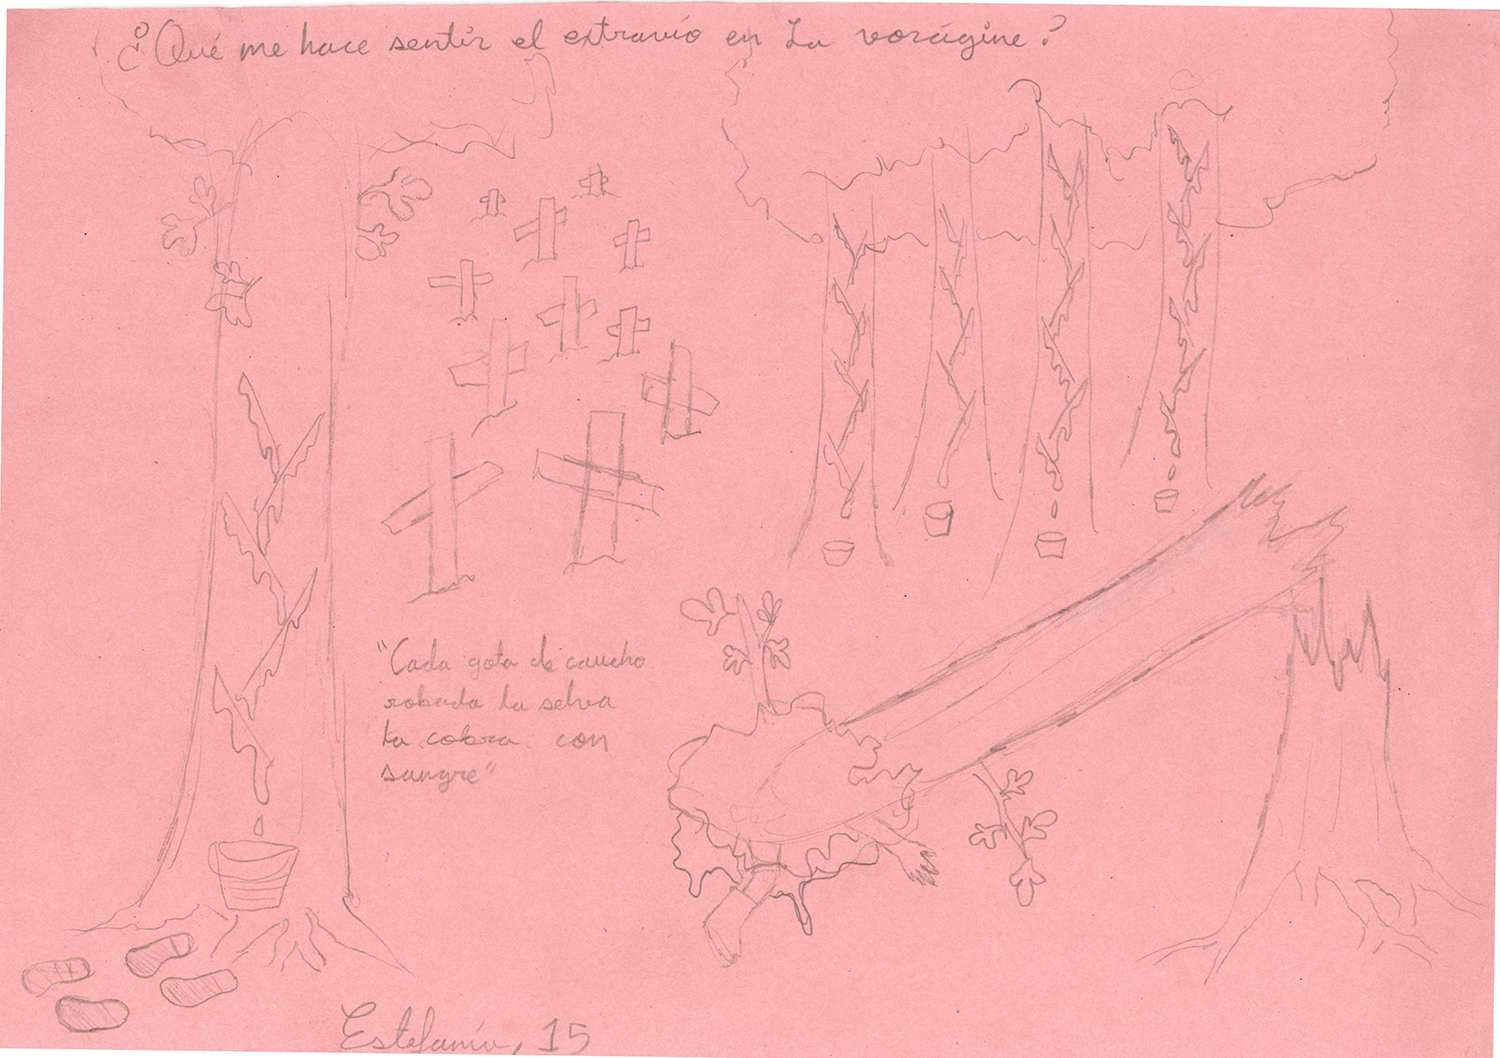 ¿Qué me hace sentir el extravío en La vorágine?
"Cada gota de caucho
robada la selva
la cobra con
sangre"
Estefanía, 15